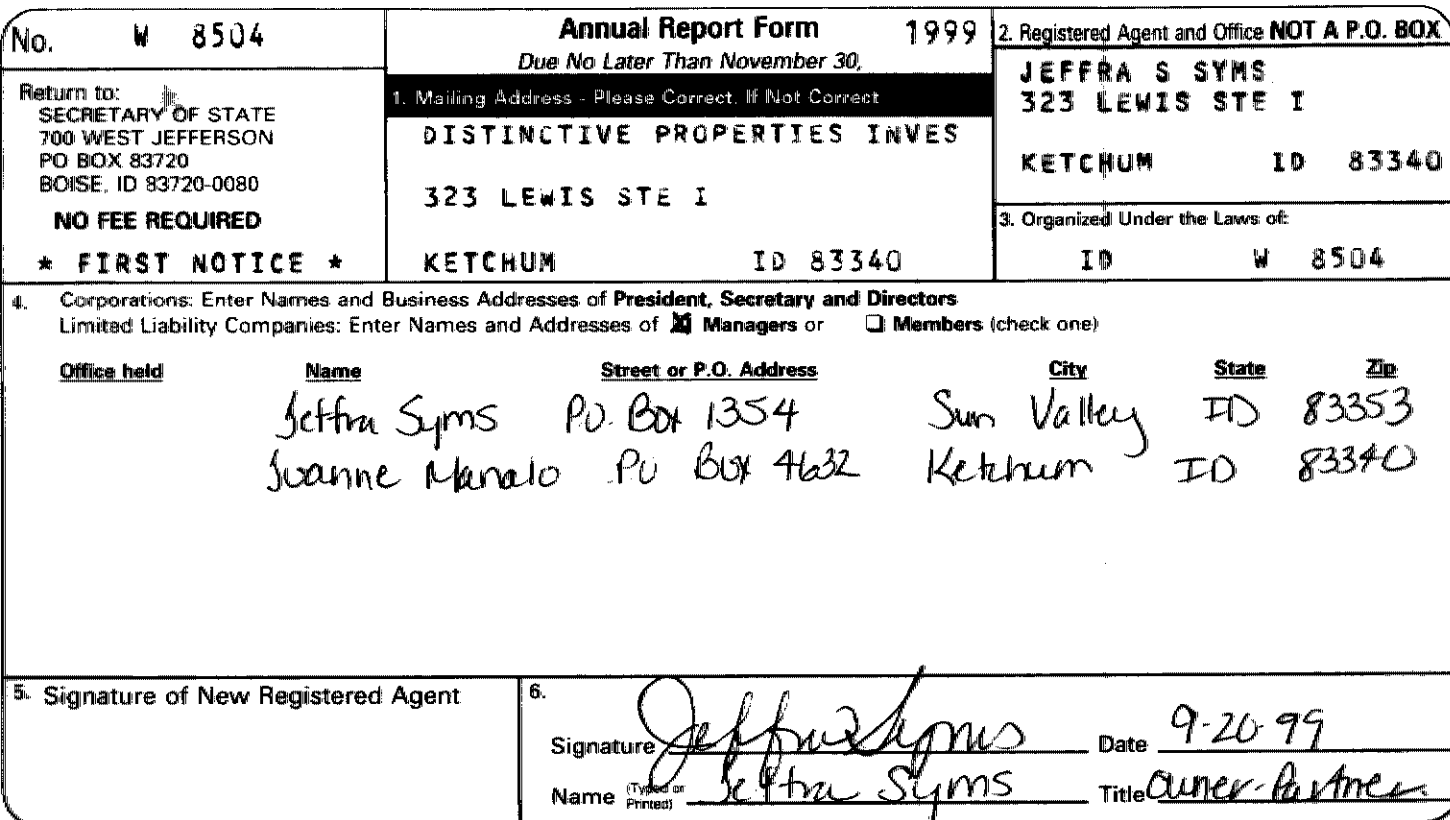 No. W 8504
Annual Report Form 1999
Due No Later Than November 30,
Return to:
SECRETARY OF STATE
700 WEST JEFFERSON
PO BOX 83720
BOISE, ID 83720-0080
NO FEE REQUIRED
* FIRST NOTICE *
1. Mailing Address - Please Correct, If Not Correct
DISTINCTIVE PROPERTIES INVES
323 LEWIS STE I
KETCHUM ID 83340
2. Registered Agent and Office NOT A P.O. BOX
JEFFRA S SYMS
323 LEWIS STE I
KETCHUM ID 83340
3. Organized Under the Laws of:
ID W 8504
4. Corporations: Enter Names and Business Addresses of President, Secretary and Directors
Limited Liability Companies: Enter Names and Addresses of Managers or Members (check one)
Office held Name Street or P.O. Address City State Zip
Jeffra Syms P.O. Box 1354 Sun Valley ID 83353
Joanne Manalo PO Box 4632 Ketchum ID 83340
5. Signature of New Registered Agent
6.
Signature Jeffra Syms Date 9-20-99
Name (Typed or Printed) Jeffra Syms Title Owner-Partner